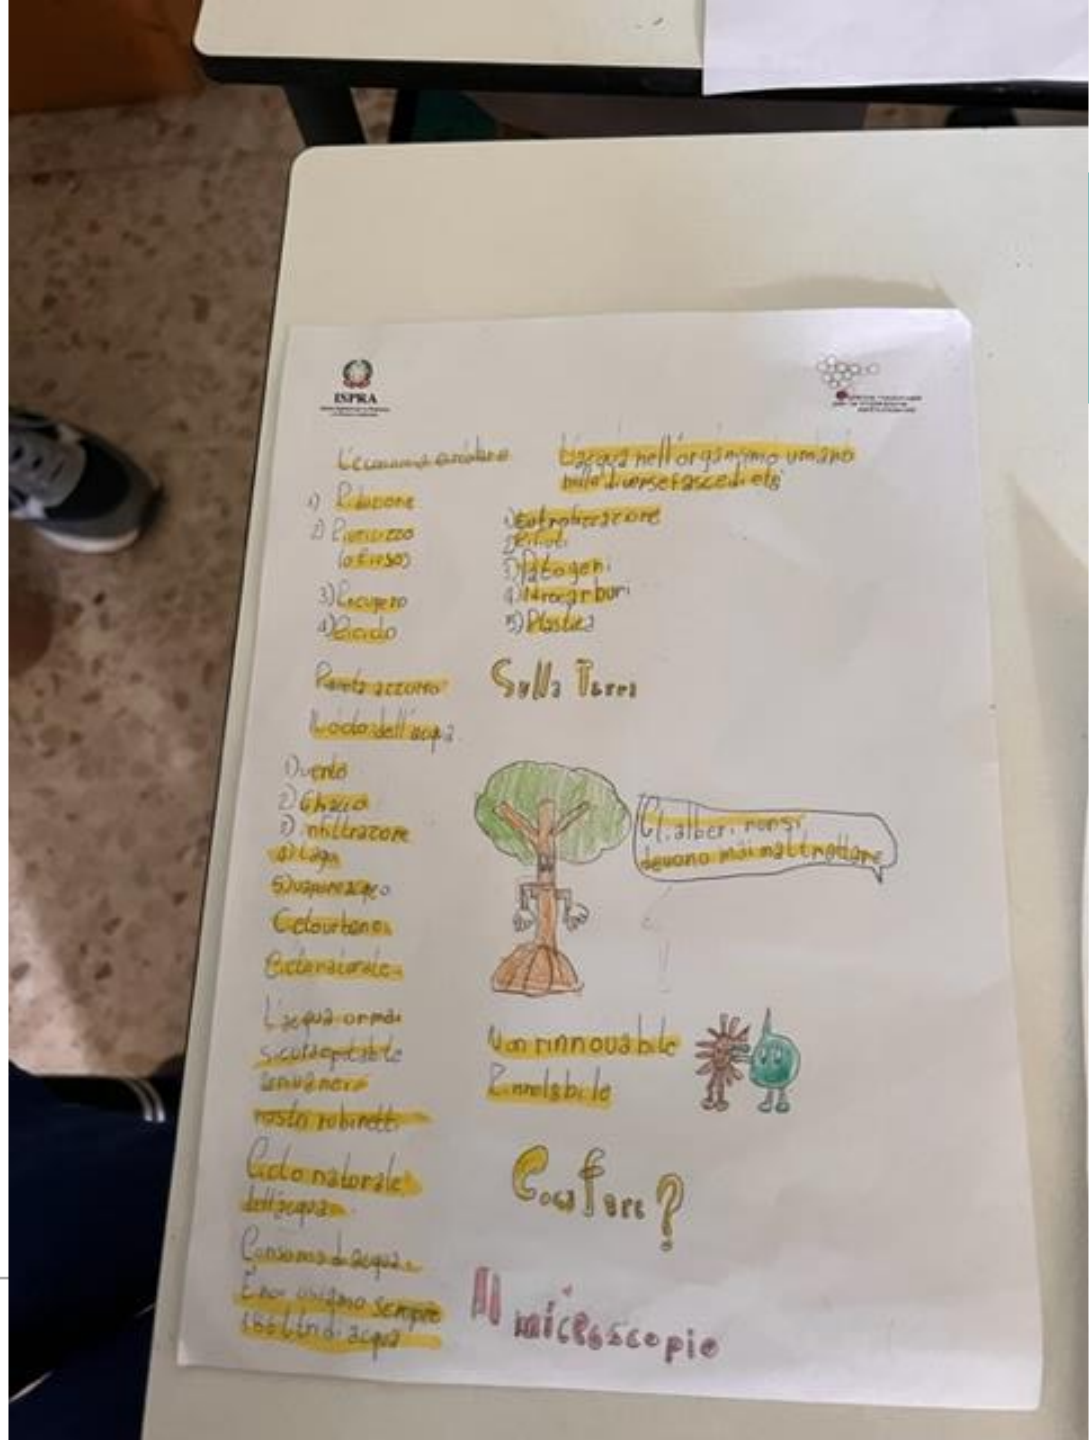 ISPRA
L'economia circolare
1) Riduzione
2) Riutilizzo
(o riuso)
3) Recupero
4) Riciclo
Pianeta azzurro
Il ciclo dell'acqua.
1) vento
2) Ghiacio
3) infiltrazione
4) Lago
5) vapore acqeo
Ciclo urbano.
Ciclo naturale.
L'acqua ormai
nostri rubinetti
Ciclo naturale
dell'acqua.
Consumo di acqua.
E noi usiamo sempre
litri di acqua
L'acqua nell'organismo umano
nelle diverse fasce di età
1) Eutrofizzazione
2) Rifiuti
3) Patogeni
4) Idrocarburi
5) Plastica
Sulla Terra
Gli alberi non si
devono mai mattrattare
Non rinnovabile
Cosa fare?
Il microscopio